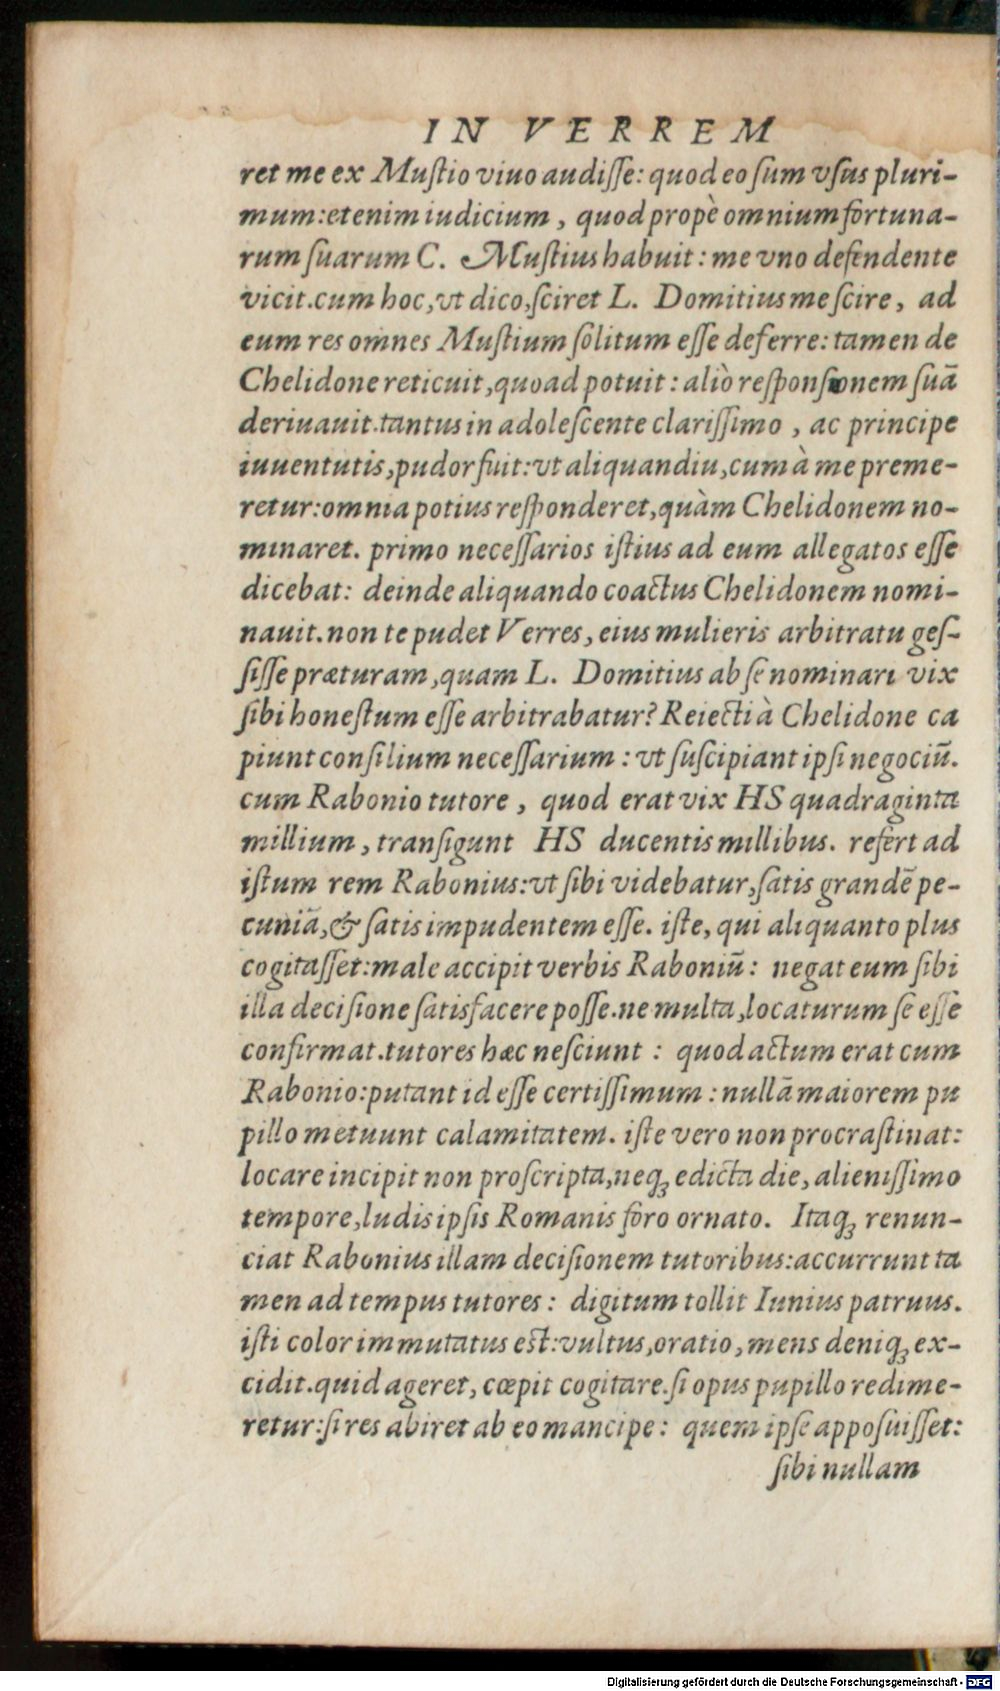 IN VERREM
ret me ex Muſtio viuo audiſſe: quod eo ſum vſus pluri-
mum: etenim iudicium, quod propè omnium fortuna-
rum ſuarum C. Muſtius habuit: me vno defendente
vicit. cum hoc, vt dico, ſciret L. Domitius me ſcire, ad
eum res omnes Muſtium ſolitum eſſe deferre: tamen de
Chelidone reticuit, quoad potuit: aliò reſponſionem ſuā
deriuauit. tantus in adoleſcente clariſſimo, ac principe
iuuentutis, pudor fuit: vt aliquandiu, cum à me preme-
retur: omnia potius reſponderet, quàm Chelidonem no-
minaret. primo neceſſarios iſtius ad eum allegatos eſſe
dicebat: deinde aliquando coactus Chelidonem nomi-
nauit. non te pudet Verres, eius mulieris arbitratu geſ-
ſiſſe præturam, quam L. Domitius ab ſe nominari vix
ſibi honeſtum eſſe arbitrabatur? Reiecti à Chelidone ca
piunt conſilium neceſſarium: vt ſuſcipiant ipſi negociū.
cum Rabonio tutore, quod erat vix HS quadraginta
millium, tranſigunt HS ducentis millibus. refert ad
iſtum rem Rabonius: vt ſibi videbatur, ſatis grandē pe-
cuniā, & ſatis impudentem eſſe. iſte, qui aliquanto plus
cogitaſſet: male accipit verbis Raboniū: negat eum ſibi
illa deciſione ſatisfacere poſſe. ne multa, locaturum ſe eſſe
confirmat. tutores hæc neſciunt: quod actum erat cum
Rabonio: putant id eſſe certiſſimum: nullā maiorem pu
pillo metuunt calamitatem. iſte vero non procraſtinat:
locare incipit non proſcripta, neqꝫ edicta die, alieniſſimo
tempore, ludis ipſis Romanis foro ornato. Itaqꝫ renun-
ciat Rabonius illam deciſionem tutoribus: accurrunt ta
men ad tempus tutores: digitum tollit Iunius patruus.
iſti color immutatus eſt: vultus, oratio, mens deniqꝫ ex-
cidit. quid ageret, cœpit cogitare. ſi opus pupillo redime-
retur: ſi res abiret ab eo mancipe: quem ipſe appoſuiſſet:
ſibi nullam
Digitalisierung gefördert durch die Deutsche Forschungsgemeinschaft - DFG